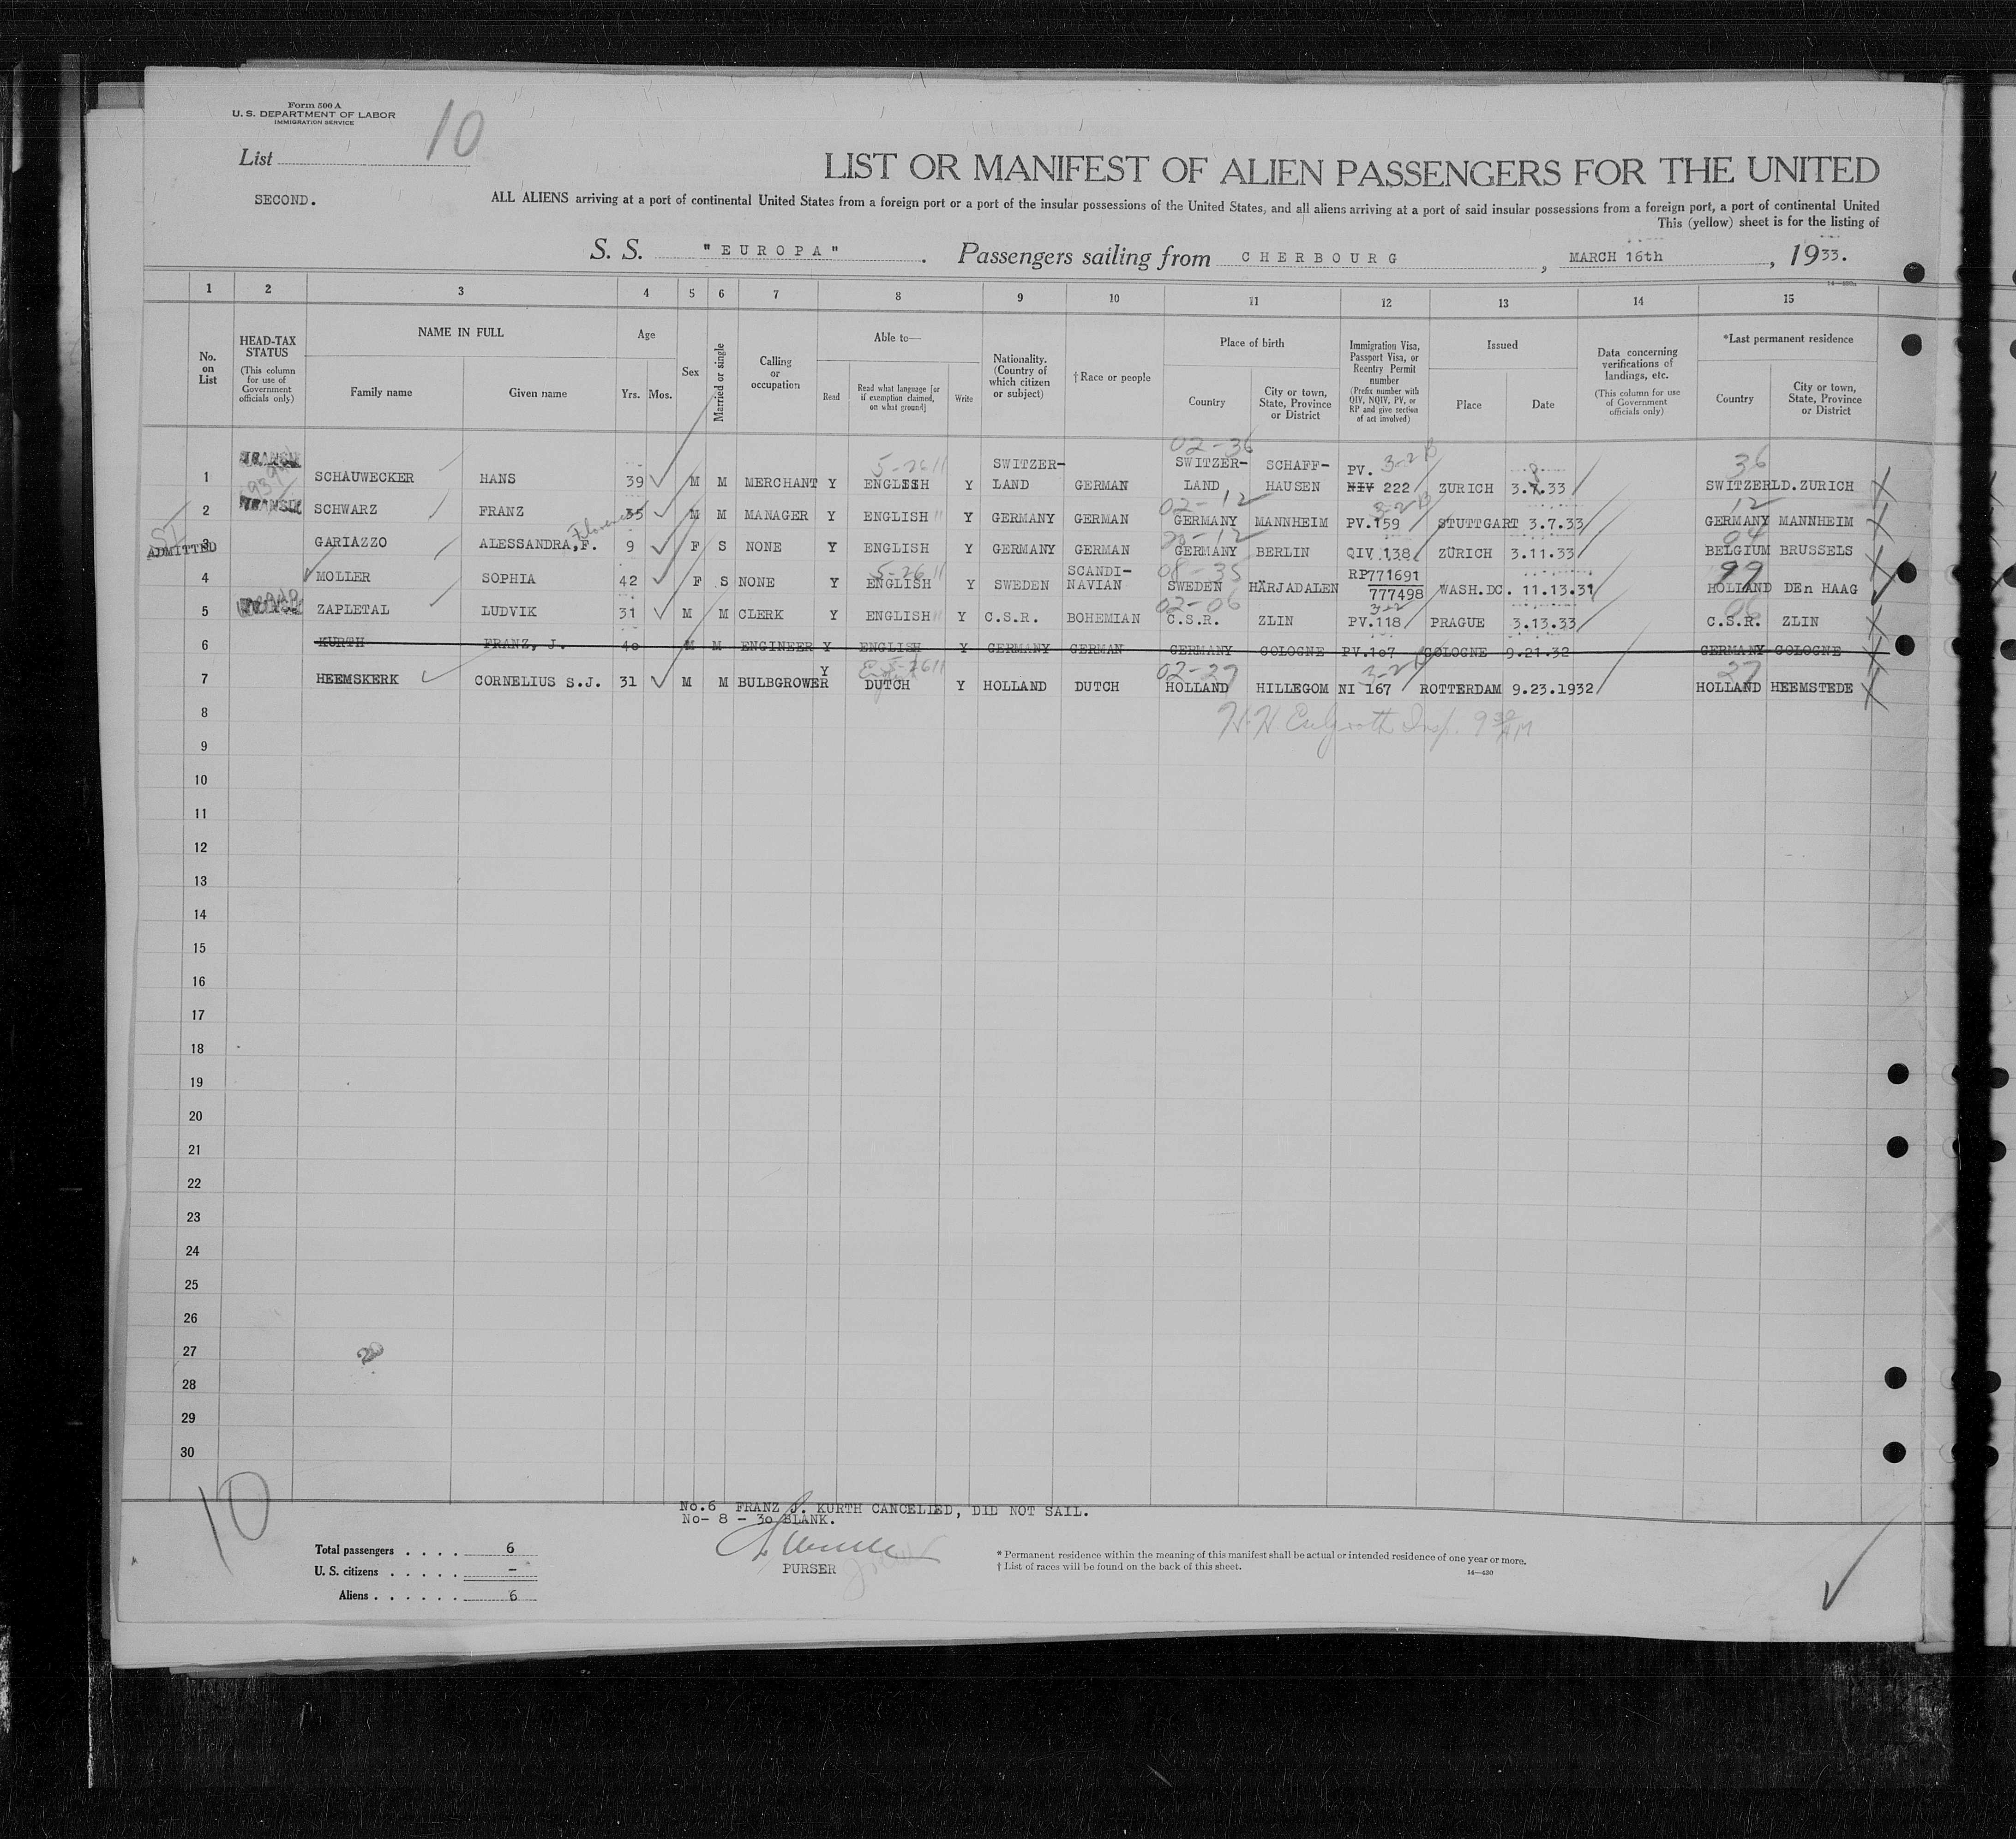 Form 500 A
U. S. DEPARTMENT OF LABOR
IMMIGRATION SERVICE
List 10
SECOND.
LIST OR MANIFEST OF ALIEN PASSENGERS FOR THE UNITED
ALL ALIENS arriving at a port of continental United States from a foreign port or a port of the insular possessions of the United States, and all aliens arriving at a port of said insular possessions from a foreign port, a port of continental United
This (yellow) sheet is for the listing of
S. S. "EUROPA". Passengers sailing from CHERBOURG, MARCH 16th, 1933.
1 2 3 4 5 6 7 8 9 10 11 12 13 14 15
No. on List
HEAD-TAX STATUS (This column for use of Government officials only)
NAME IN FULL Family name Given name
Age Yrs. Mos.
Sex
Married or single
Calling or occupation
Able to— Read Read what language [or if exemption claimed, on what ground] Write
Nationality. (Country of which citizen or subject)
†Race or people
Place of birth Country City or town, State, Province or District
Immigration Visa, Passport Visa, or Reentry Permit number (Prefix number with QIV, NQIV, PV, or RP and give section of act involved)
Issued Place Date
Data concerning verifications of landings, etc. (This column for use of Government officials only)
*Last permanent residence Country City or town, State, Province or District
02-36 36
1 TRANSIT SCHAUWECKER HANS 39 M M MERCHANT Y 5-2611 ENGLISH Y SWITZER-LAND GERMAN SWITZER-LAND SCHAFF-HAUSEN PV. NIV 222 ZURICH 3.7.33 SWITZERLD. ZURICH
02-12 12
2 TRANSIT SCHWARZ FRANZ 35 M M MANAGER Y ENGLISH Y GERMANY GERMAN GERMANY MANNHEIM PV.159 STUTTGART 3.7.33 GERMANY MANNHEIM
ADMITTED 3 GARIAZZO ALESSANDRA,F. 9 F S NONE Y ENGLISH Y GERMANY GERMAN GERMANY BERLIN QIV.138 ZÜRICH 3.11.33 04 BELGIUM BRUSSELS
08-35 99
4 MOLLER SOPHIA 42 F S NONE Y 5-2611 ENGLISH Y SWEDEN SCANDI-NAVIAN SWEDEN HÄRJADALEN RP771691 777498 WASH.DC. 11.13.31 HOLLAND DEn HAAG
02-06 06
5 ZAPLETAL LUDVIK 31 M M CLERK Y ENGLISH Y C.S.R. BOHEMIAN C.S.R. ZLIN PV.118 PRAGUE 3.13.33 C.S.R. ZLIN
6 KURTH FRANZ, J. 40 M M ENGINEER Y ENGLISH Y GERMANY GERMAN GERMANY COLOGNE PV.107 COLOGNE 9.21.32 GERMANY COLOGNE
02-27 27
7 HEEMSKERK CORNELIUS S.J. 31 M M BULBGROWER Y 5-2611 DUTCH Y HOLLAND DUTCH HOLLAND HILLEGOM NI 167 ROTTERDAM 9.23.1932 HOLLAND HEEMSTEDE
8
9
10
11
12
13
14
15
16
17
18
19
20
21
22
23
24
25
26
27
28
29
30
10
No.6 FRANZ J. KURTH CANCELLED, DID NOT SAIL.
No- 8 - 30 BLANK.
PURSER
Total passengers . . . . 6
U. S. citizens . . . . . -
Aliens . . . . . . 6
* Permanent residence within the meaning of this manifest shall be actual or intended residence of one year or more.
† List of races will be found on the back of this sheet.
14—430